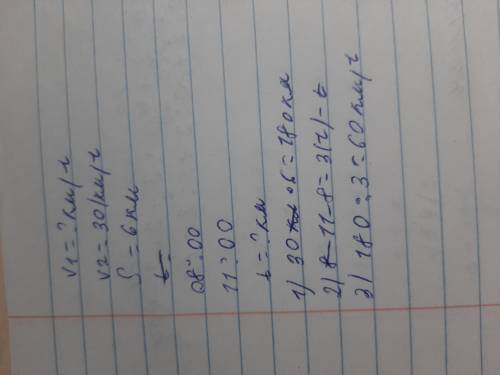 v1=? км/ч
v2=30 км/ч
S=6 км
t
08:00
11:00
t=? км
1) 30 км·6=180 км
2) 8-11-8=3(ч)-t
3) 180:3=60 км/ч